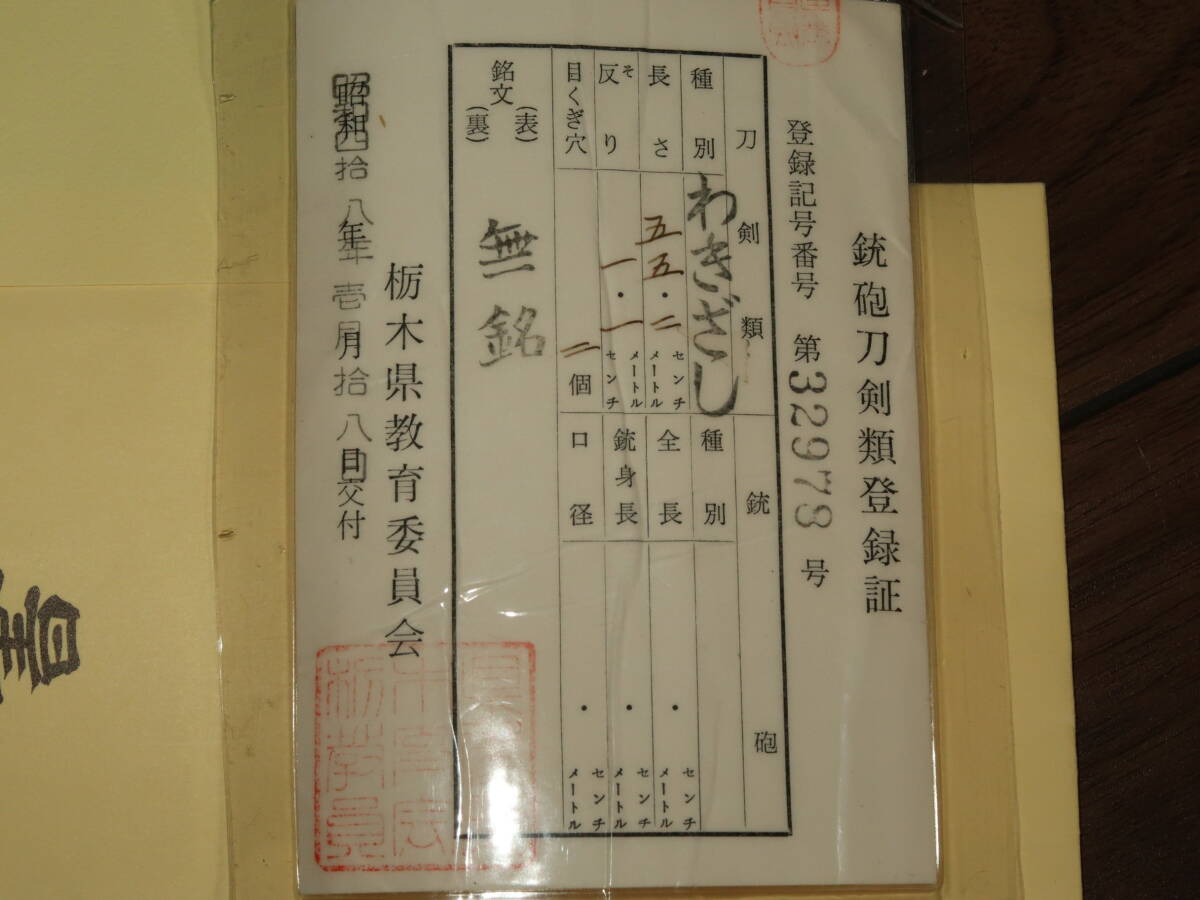 銃砲刀剣類登録証
登録記号番号 第32978号
刀剣類
種別 わきざし
長さ 五五・二 センチメートル
反り そ 一・一 センチメートル
目くぎ穴 二個
銘文 (表) (裏) 無銘
銃砲
種別
全長 ・ センチメートル
銃身長 ・ センチメートル
口径 ・ センチメートル
栃木県教育委員会
昭和四拾八年壱月拾八日交付